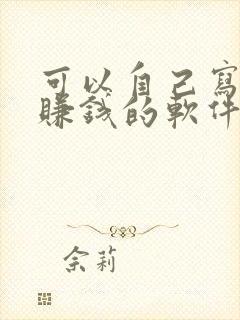 可以自己寫
賺錢的軟件
佘莉